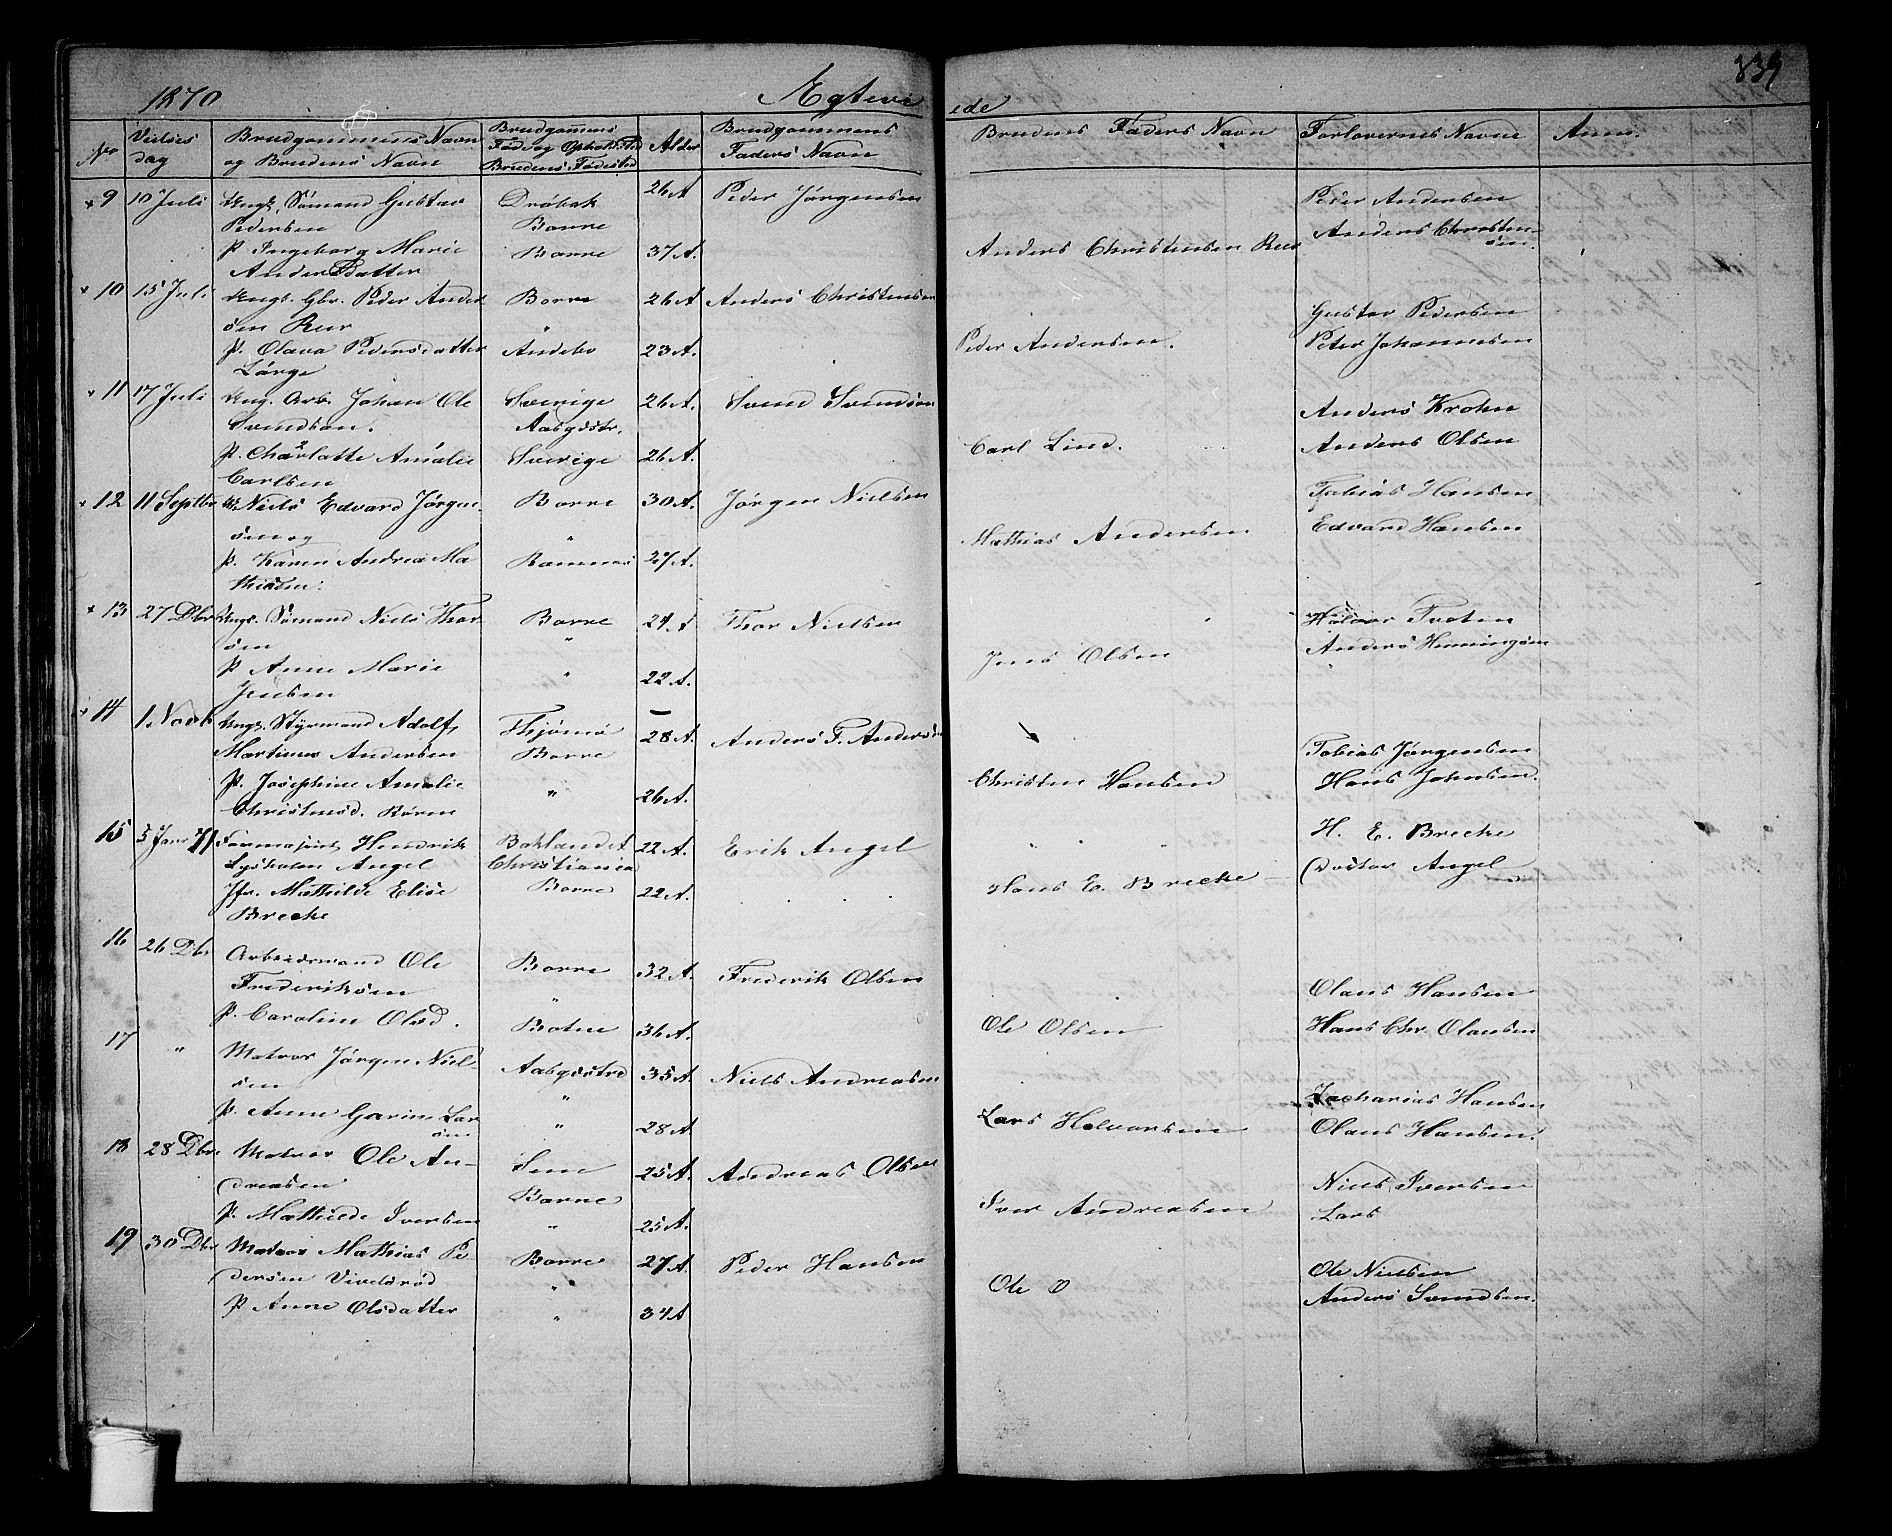 1870 Ægtevi ede 339
No Vielses dag Brudgommens Navn og Brudens Navn Brudgommens Føde og Opholdsted Brudens Fødested Alder Brudgommens Faders Navn Brudens Faders Navn Forlovernes Navne Anm.
9 10 Juli Ungk. Sømand Gustav Drøbak 26 A Peder Jørgensen Peder Andersen
Pedersen Borre Anders Christen-
P. Ingeborg Marie Borre 37 A. Anders Christensen Rør sen.
Anders Datter
10 15 Juli Ungk. Gbr. Peder Ander Borre 26 A Anders Christensen
sen Rør " Gustav Pedersen
P. Olava Pedersdatter Andebo 23 A. Peder Andersen. Peter Johannesen
Lørge
11 17 Juli Ung. Arb. Johan Ole Sverige 26 A. Svend Svendsen Anders Krohn
Svendsen. Aasgsstr.
P. Charlotte Amalie Sverige 26 A. Carl Lind. Anders Olsen
Carlsen
12 11 Septbr Niels Edvard Jørgen- Borre 30 A. Jørgen Nielsen Tobias Hansen
sen og " Edvard Hansen
P. Karen Andrea Ma Ramnes 27 A. Mathias Andersen
thiasen.
13 27 Dbr Ungk. Sømand Niels Thor Borre 24 A Thor Nielsen Halvor Tveten
sen " Anders Henningsen
P Anne Marie " 22 A. Jens Olsen
Jensen
14 1. Novb Ungk. Styrmand Adolf Thjømø 28 A. Anders F. Andersen
Martinus Andersen Borre Tobias Jørgensen
P. Josephine Amalie " 26 A. Christen Hansen Hans Johnsen.
Christensd. Røren
15 5 Janr 71 Farmaceut Hendrik Baklandet 22 A. Erik Angel H. E. Brecke
Lysholm Angel Christiania Doctor Angel
Jfr. Mathilde Elise Borre 22 A. Hans E. Brecke
Brecke
16 26 Dbr Arbeidsmand Ole Borre 32 A. Frederik Olsen
Frederiksen " Olaus Hansen
P. Caroline Olsd. Botne 36 A. Ole Olsen Hans Chr. Olausen
17 " Matros Jørgen Niel- Aasgsstrd 35 A. Niels Andreasen
sen " Zacharias Hansen
P. Anne Garine Lar " 28 A Lars Halvorsen Olaus Hansen.
sen
18 28 Dbr. Matros Ole An- Sem 25 A. Andreas Olsen
dreasen Borre Niels Iversen
P. Mathilde Iversen " 25 A. Iver Andreasen Lars
19 30 Dbr Matros Mathias Pe Borre 27 A. Peder Hansen
dersen Viveldrød " Ole Nielsen
P Anne Olsdatter " 34 A Ole O Anders Svendsen.